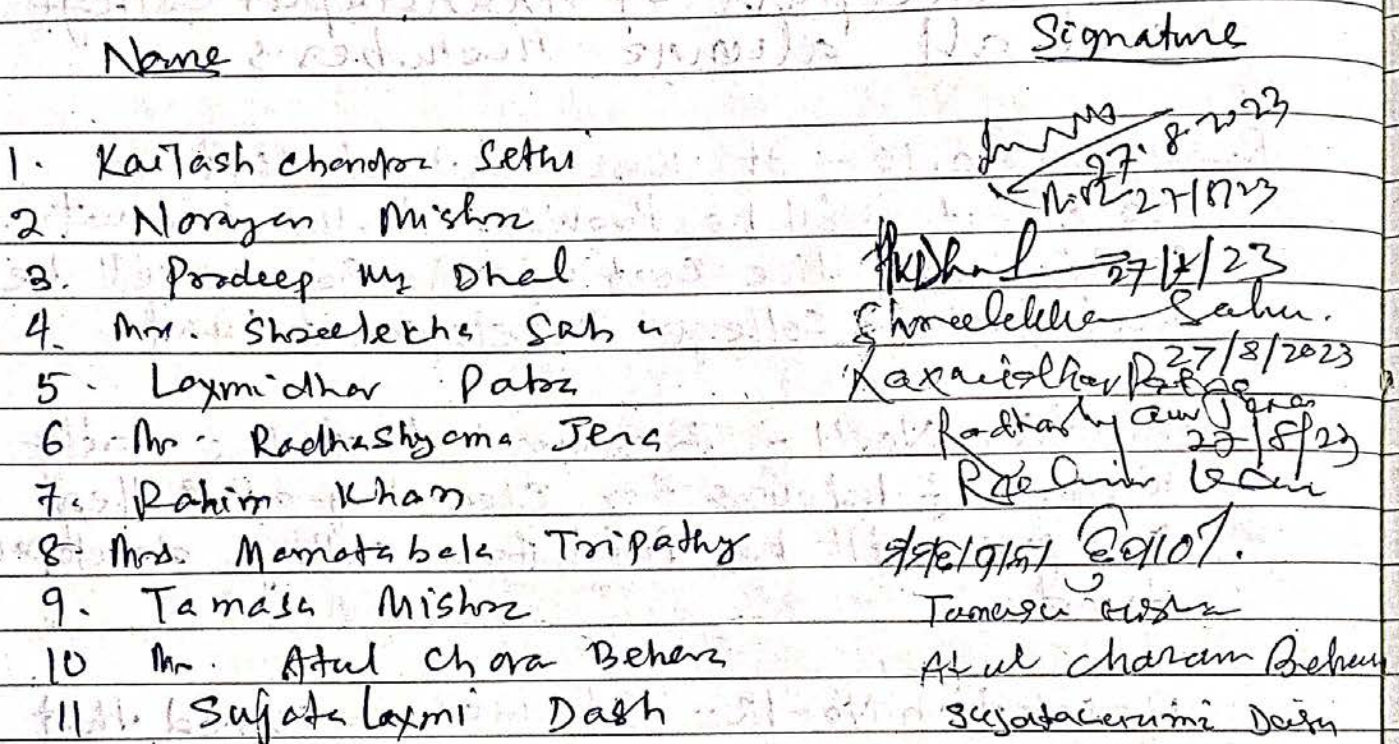 Name Signature
1. Kailash chandra Sethi 27.8.2023
2. Narayan Mishra 27/8/23
3. Pradeep Kr Dhal PKDhal 27/8/23
4. Mrs. Shreelekha Sahu Shreelekha Sahu.
5. Laxmidhar Patra Laxmidhar Patra 27/8/2023
6 Mr. Radhashyama Jena Radhashyam Jena 27/8/23
7. Rahim Khan
8. Mrs. Mamatabala Tripathy
9. Tamasa Mishra Tamasa
10 Mr. Atul Chara Behera Atul charan Behera
11. Sujata Laxmi Dash Sujatalaxmi Dash